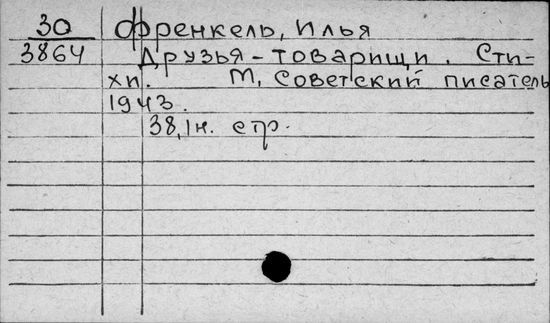 30 Френкель, Илья
3864 Друзья-товарищи. Сти-
хи. М, Советский писатель
1943.
38,1н. стр.